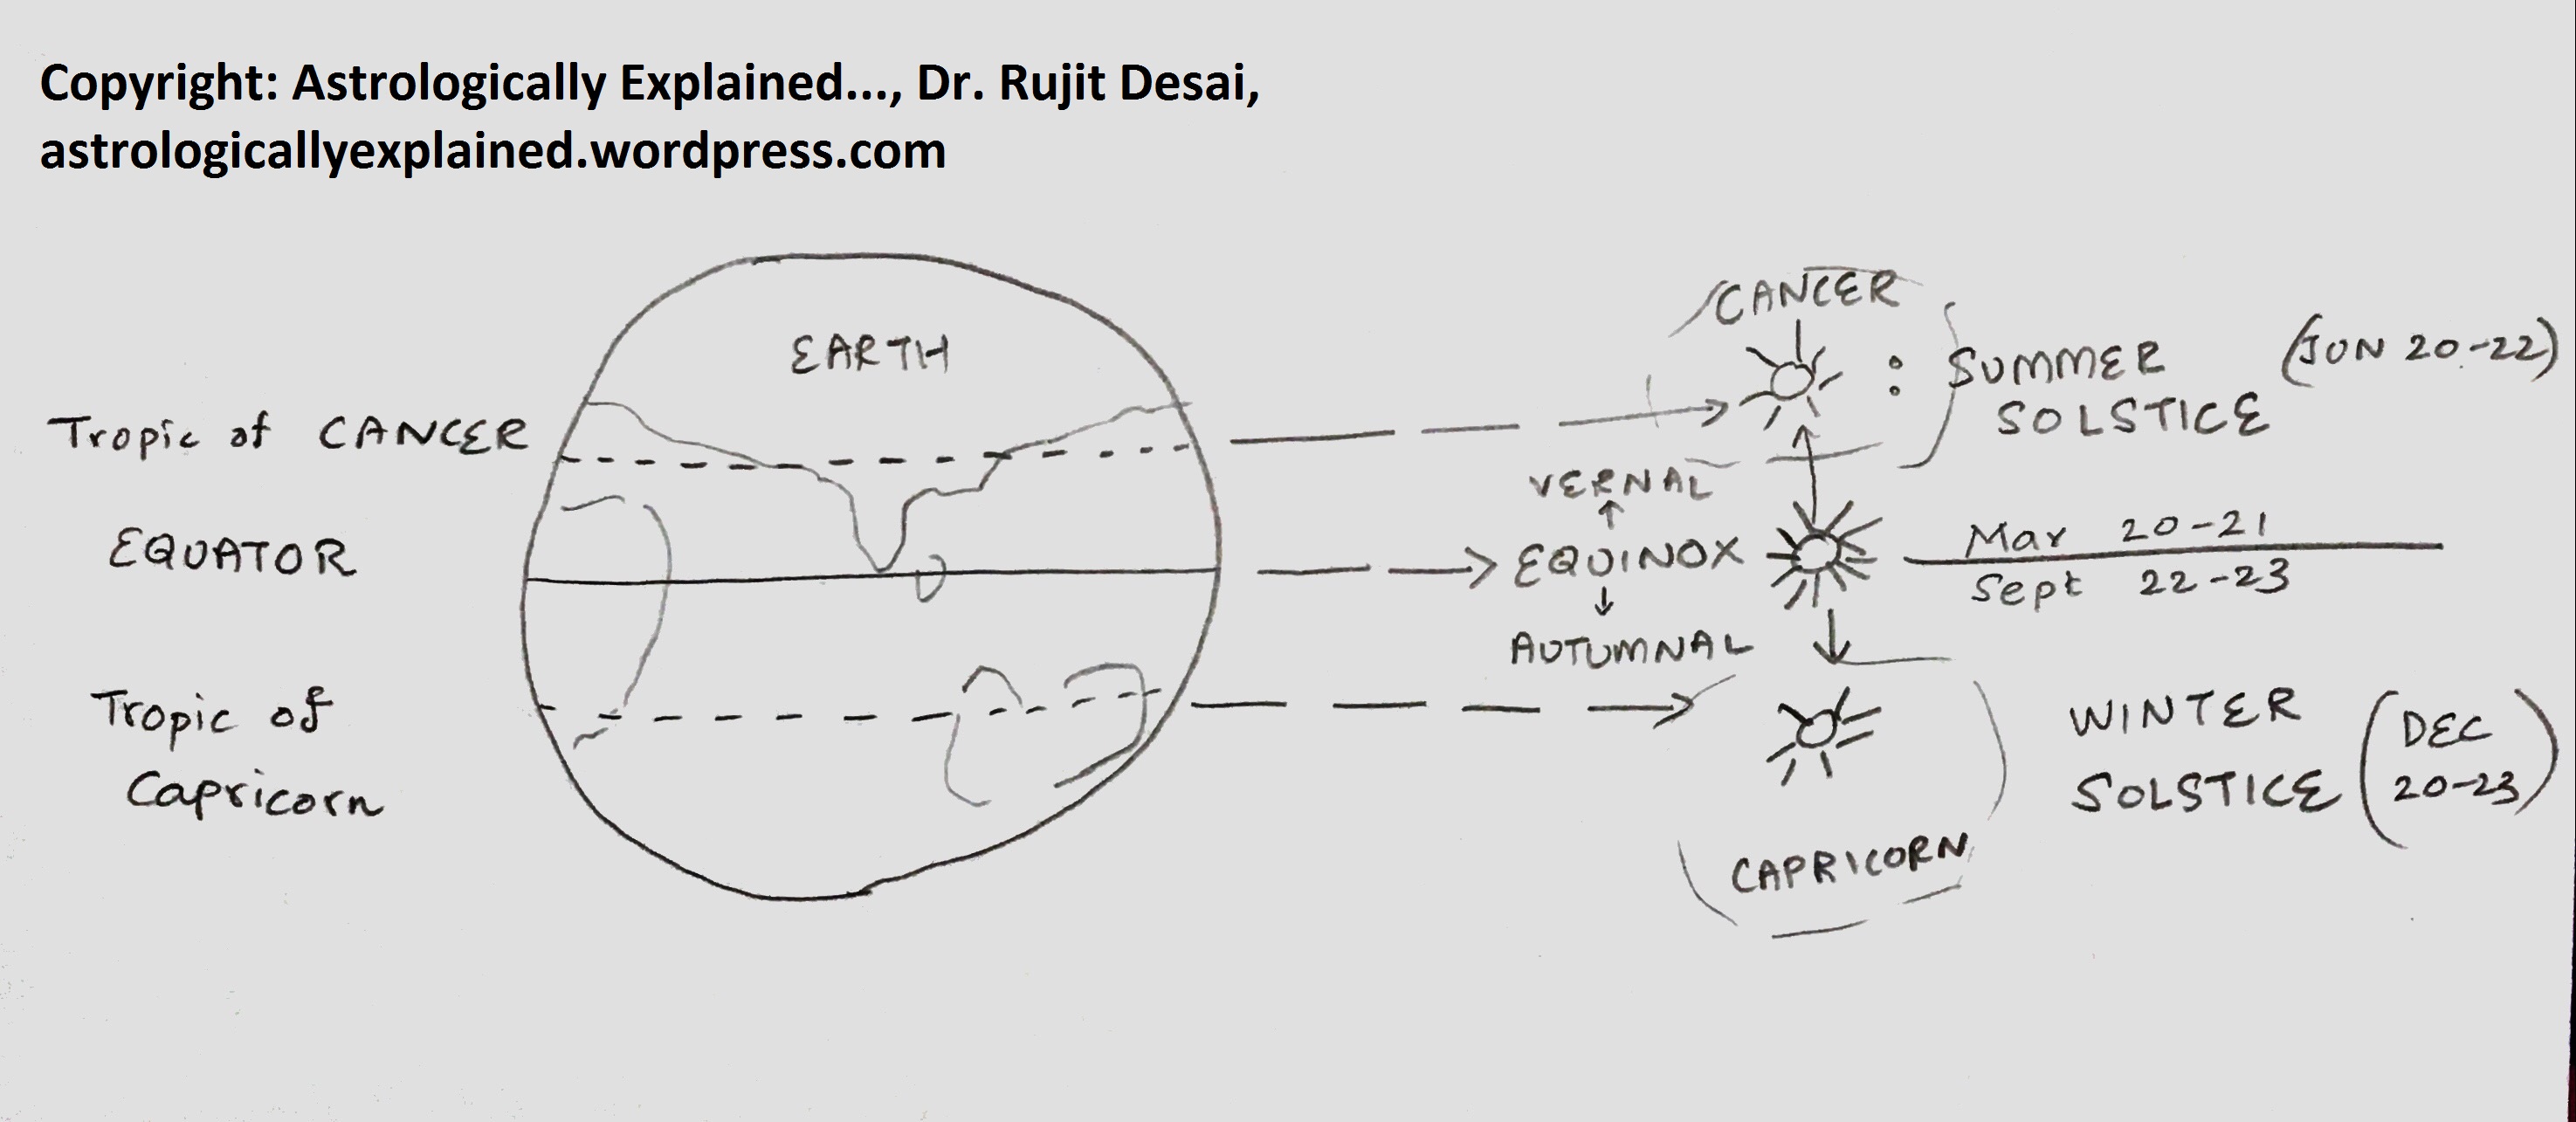 Copyright: Astrologically Explained..., Dr. Rujit Desai,
astrologicallyexplained.wordpress.com
EARTH
Tropic of CANCER
EQUATOR
Tropic of
Capricorn
CANCER
: SUMMER
SOLSTICE
(JUN 20-22)
VERNAL
↑
EQUINOX
↓
AUTUMNAL
Mar 20-21
Sept 22-23
WINTER
SOLSTICE
(DEC
20-23)
CAPRICORN